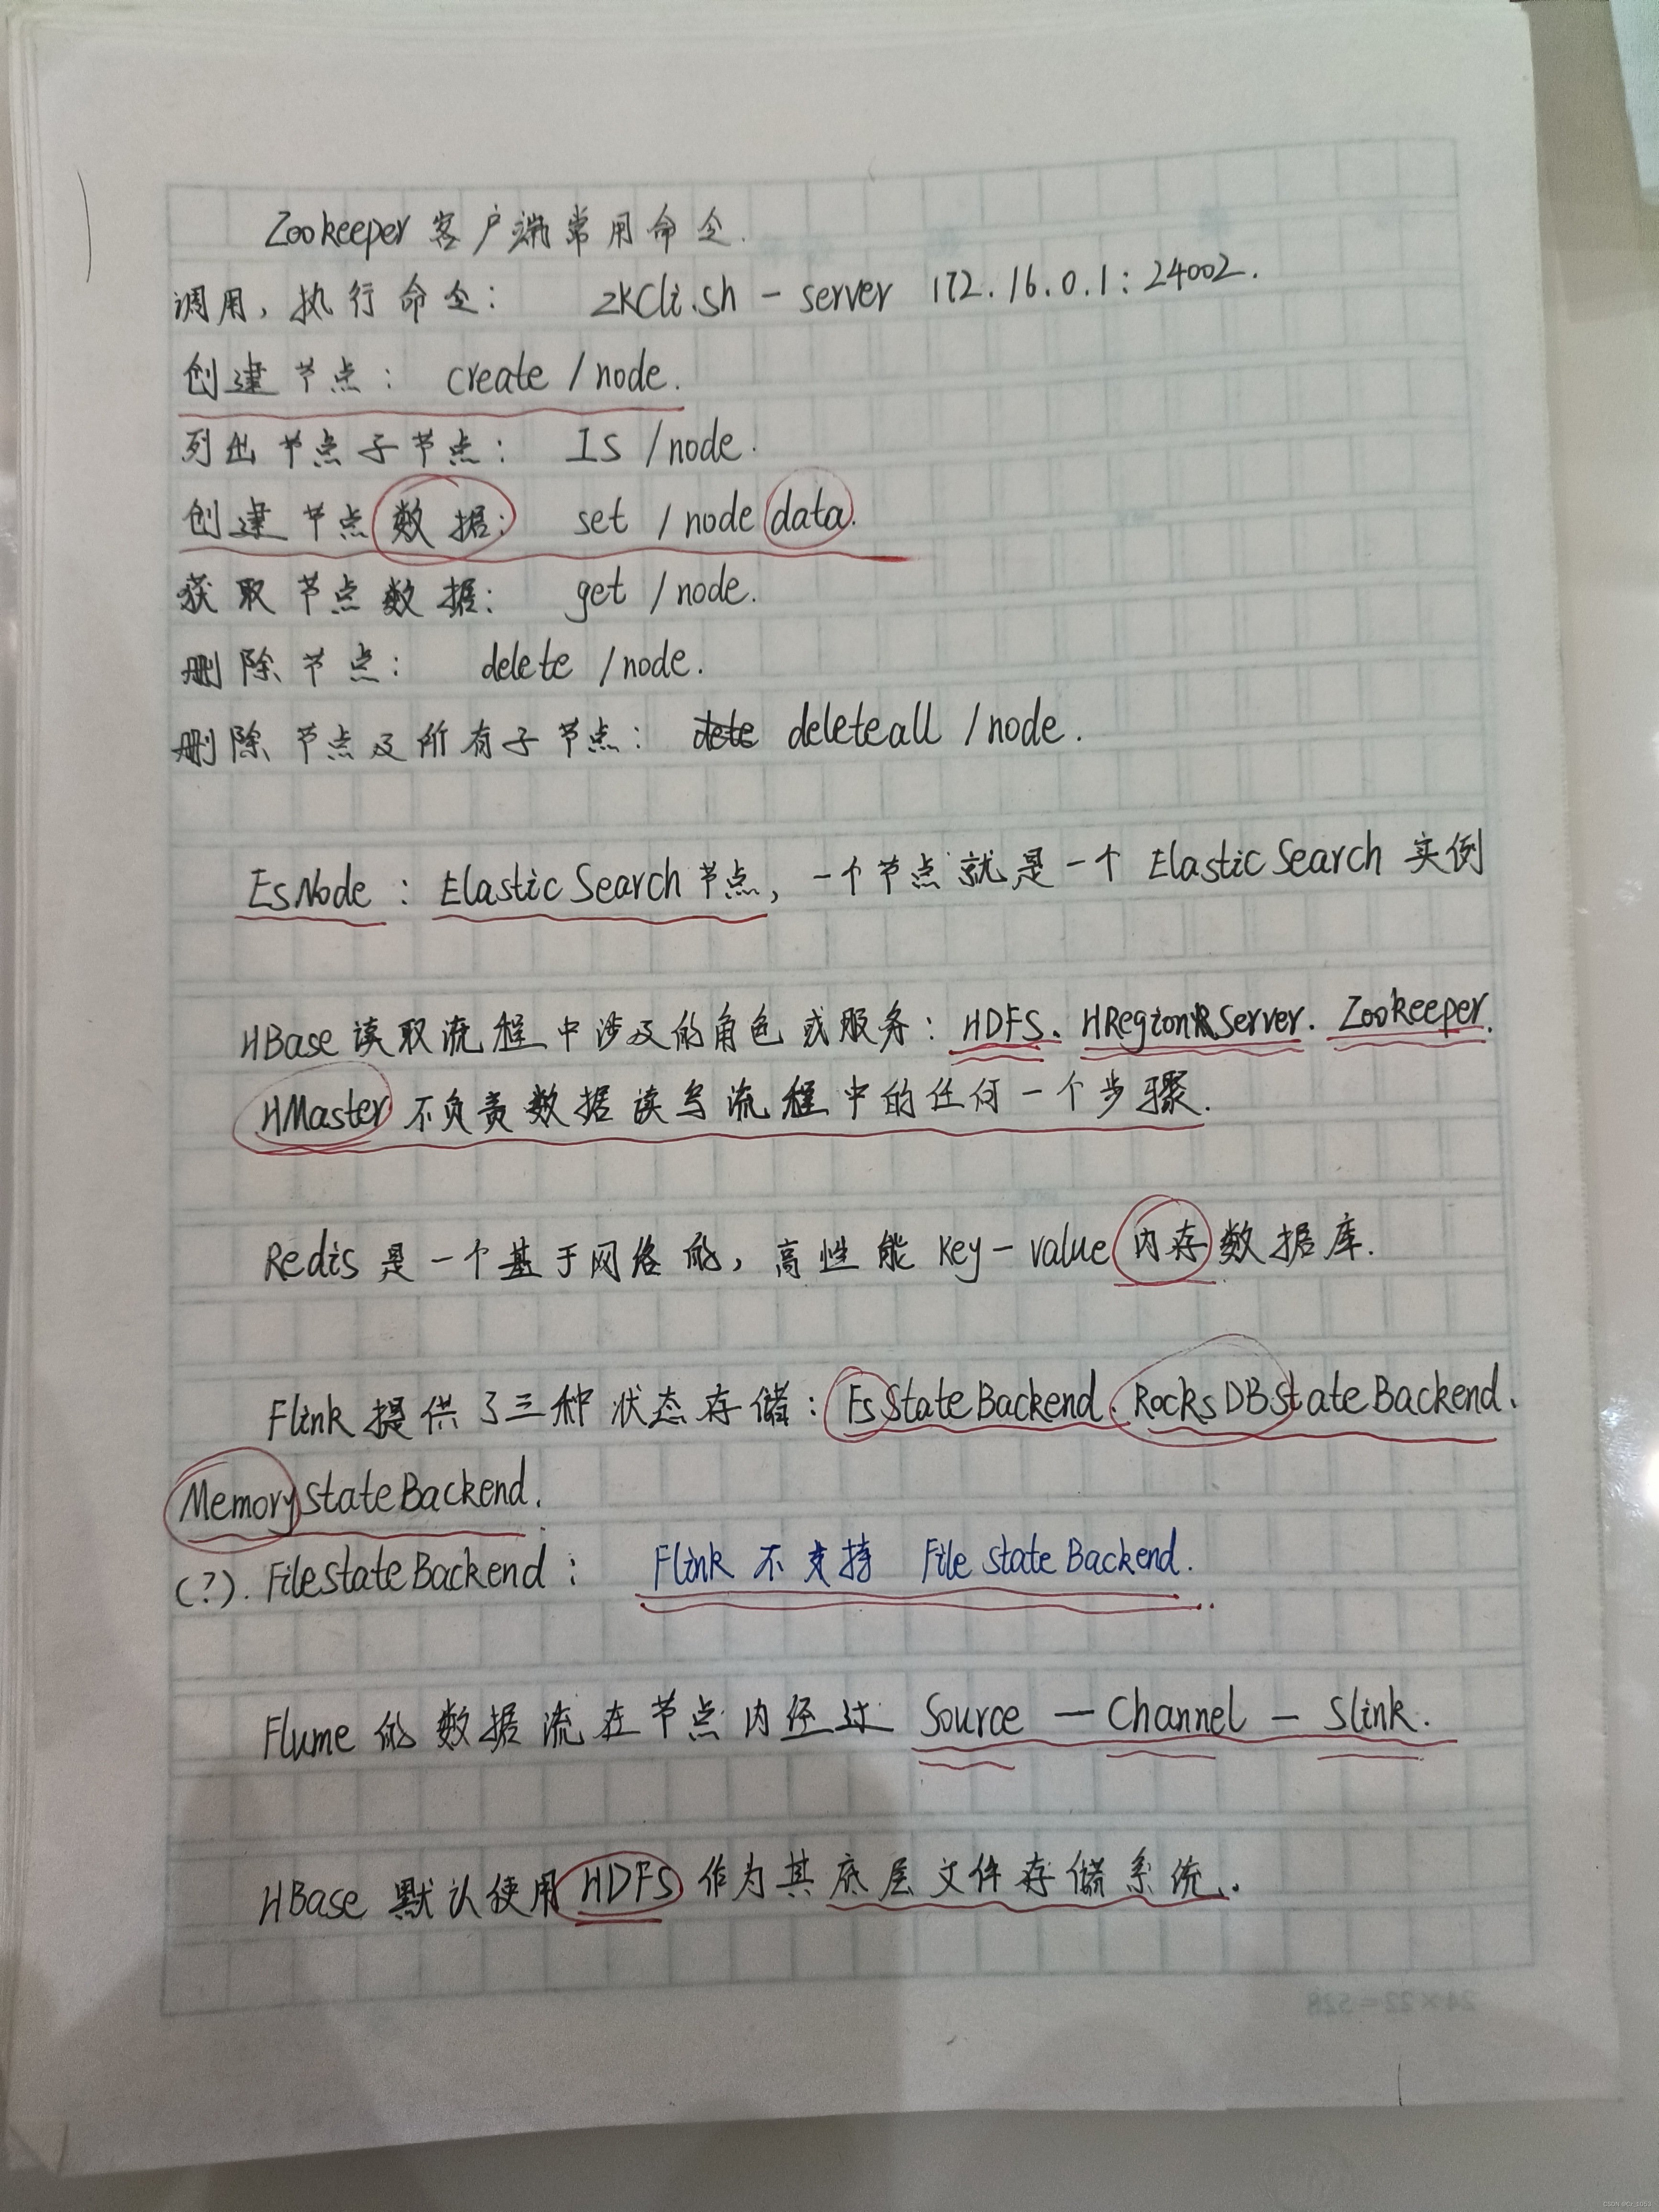 Zookeeper 客户端常用命令.
调用,执行命令: zkCli.sh - server 172.16.0.1:24002.
创建节点: create /node.
列出节点子节点: Is /node.
创建节点数据: set /node data.
获取节点数据: get /node.
删除节点: delete /node.
删除节点及所有子节点: deleteall /node.
EsNode : Elastic Search 节点,一个节点就是一个 Elastic Search 实例
HBase 读取流程中涉及的角色或服务: HDFS、HRegionServer. Zookeeper.
HMaster 不负责数据读写流程中的任何一个步骤.
Redis 是一个基于网络的,高性能 key-value 内存数据库.
Flink 提供了三种状态存储: FsStateBackend. RocksDBStateBackend、
MemoryStateBackend.
(?). FileStateBackend: Flink 不支持 File State Backend.
Flume 的数据流在节点内经过 Source — Channel — Slink.
HBase 默认使用 HDFS 作为其底层文件存储系统.
24×22=528